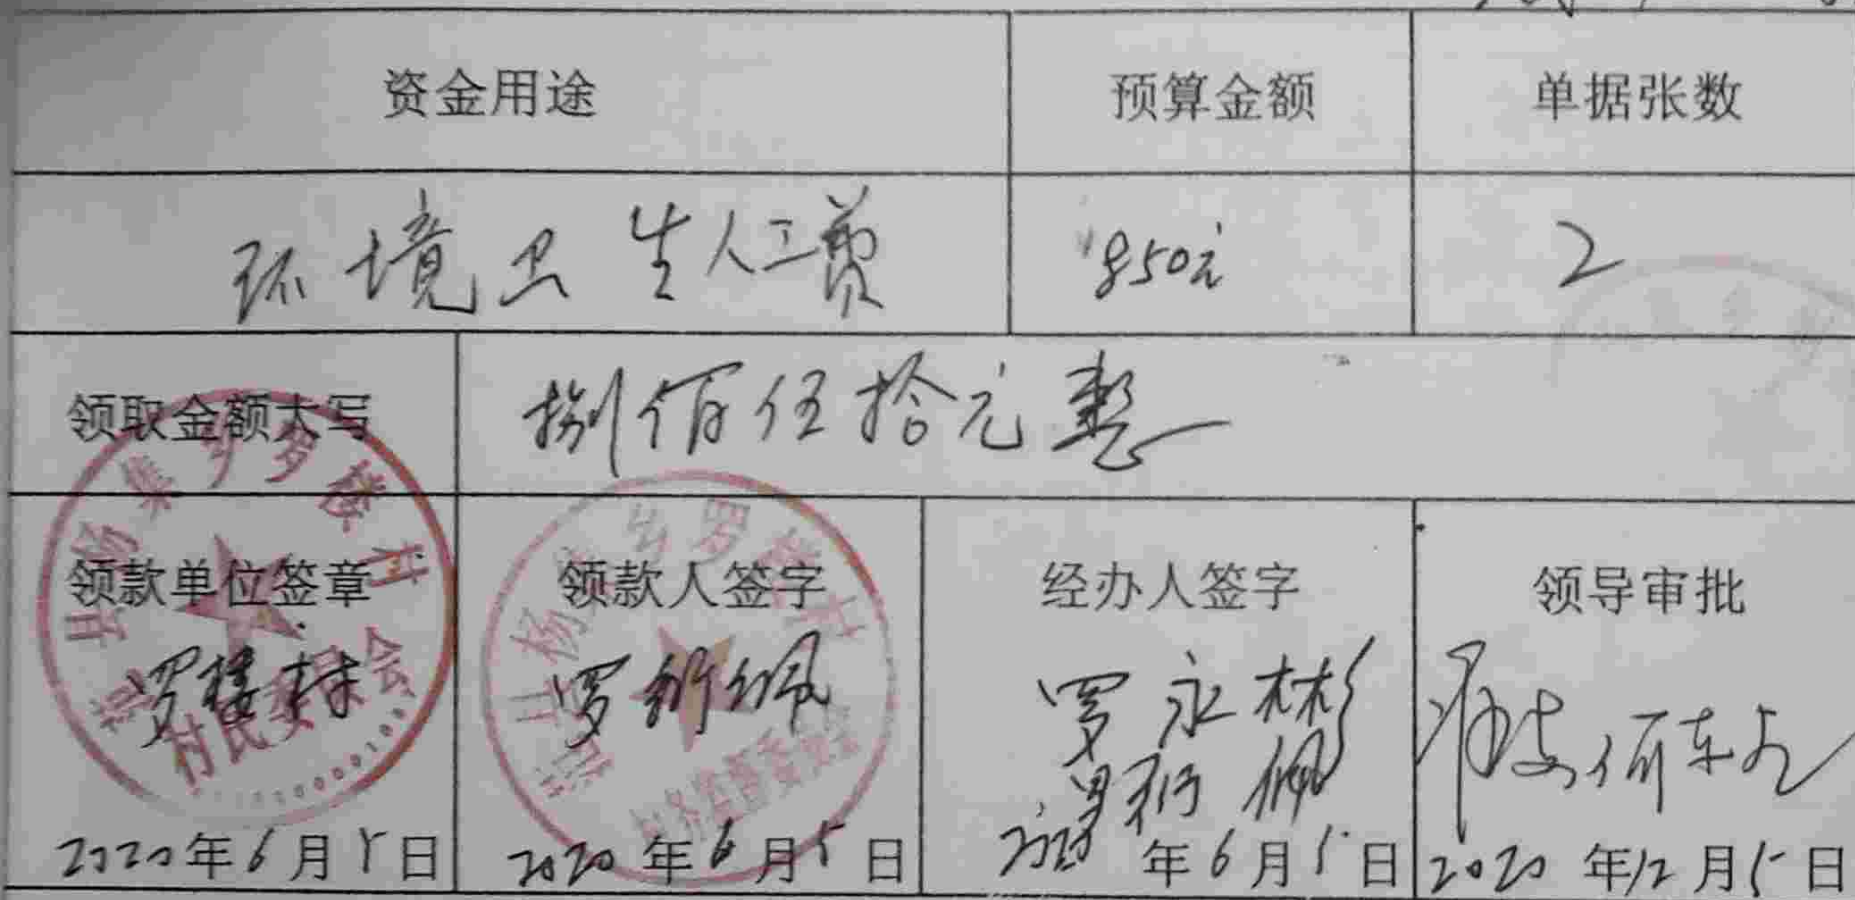 资金用途 预算金额 单据张数
环境卫生人工费 850元 2
领取金额大写 捌佰伍拾元整
领款单位签章 领款人签字 经办人签字 领导审批
罗楼村 罗 罗永彬
2020年6月5日 2020年6月5日 2020年6月5日 2020年12月5日
县杨集乡罗楼村
村民委员会
县杨集乡罗楼村
村务监督委员会